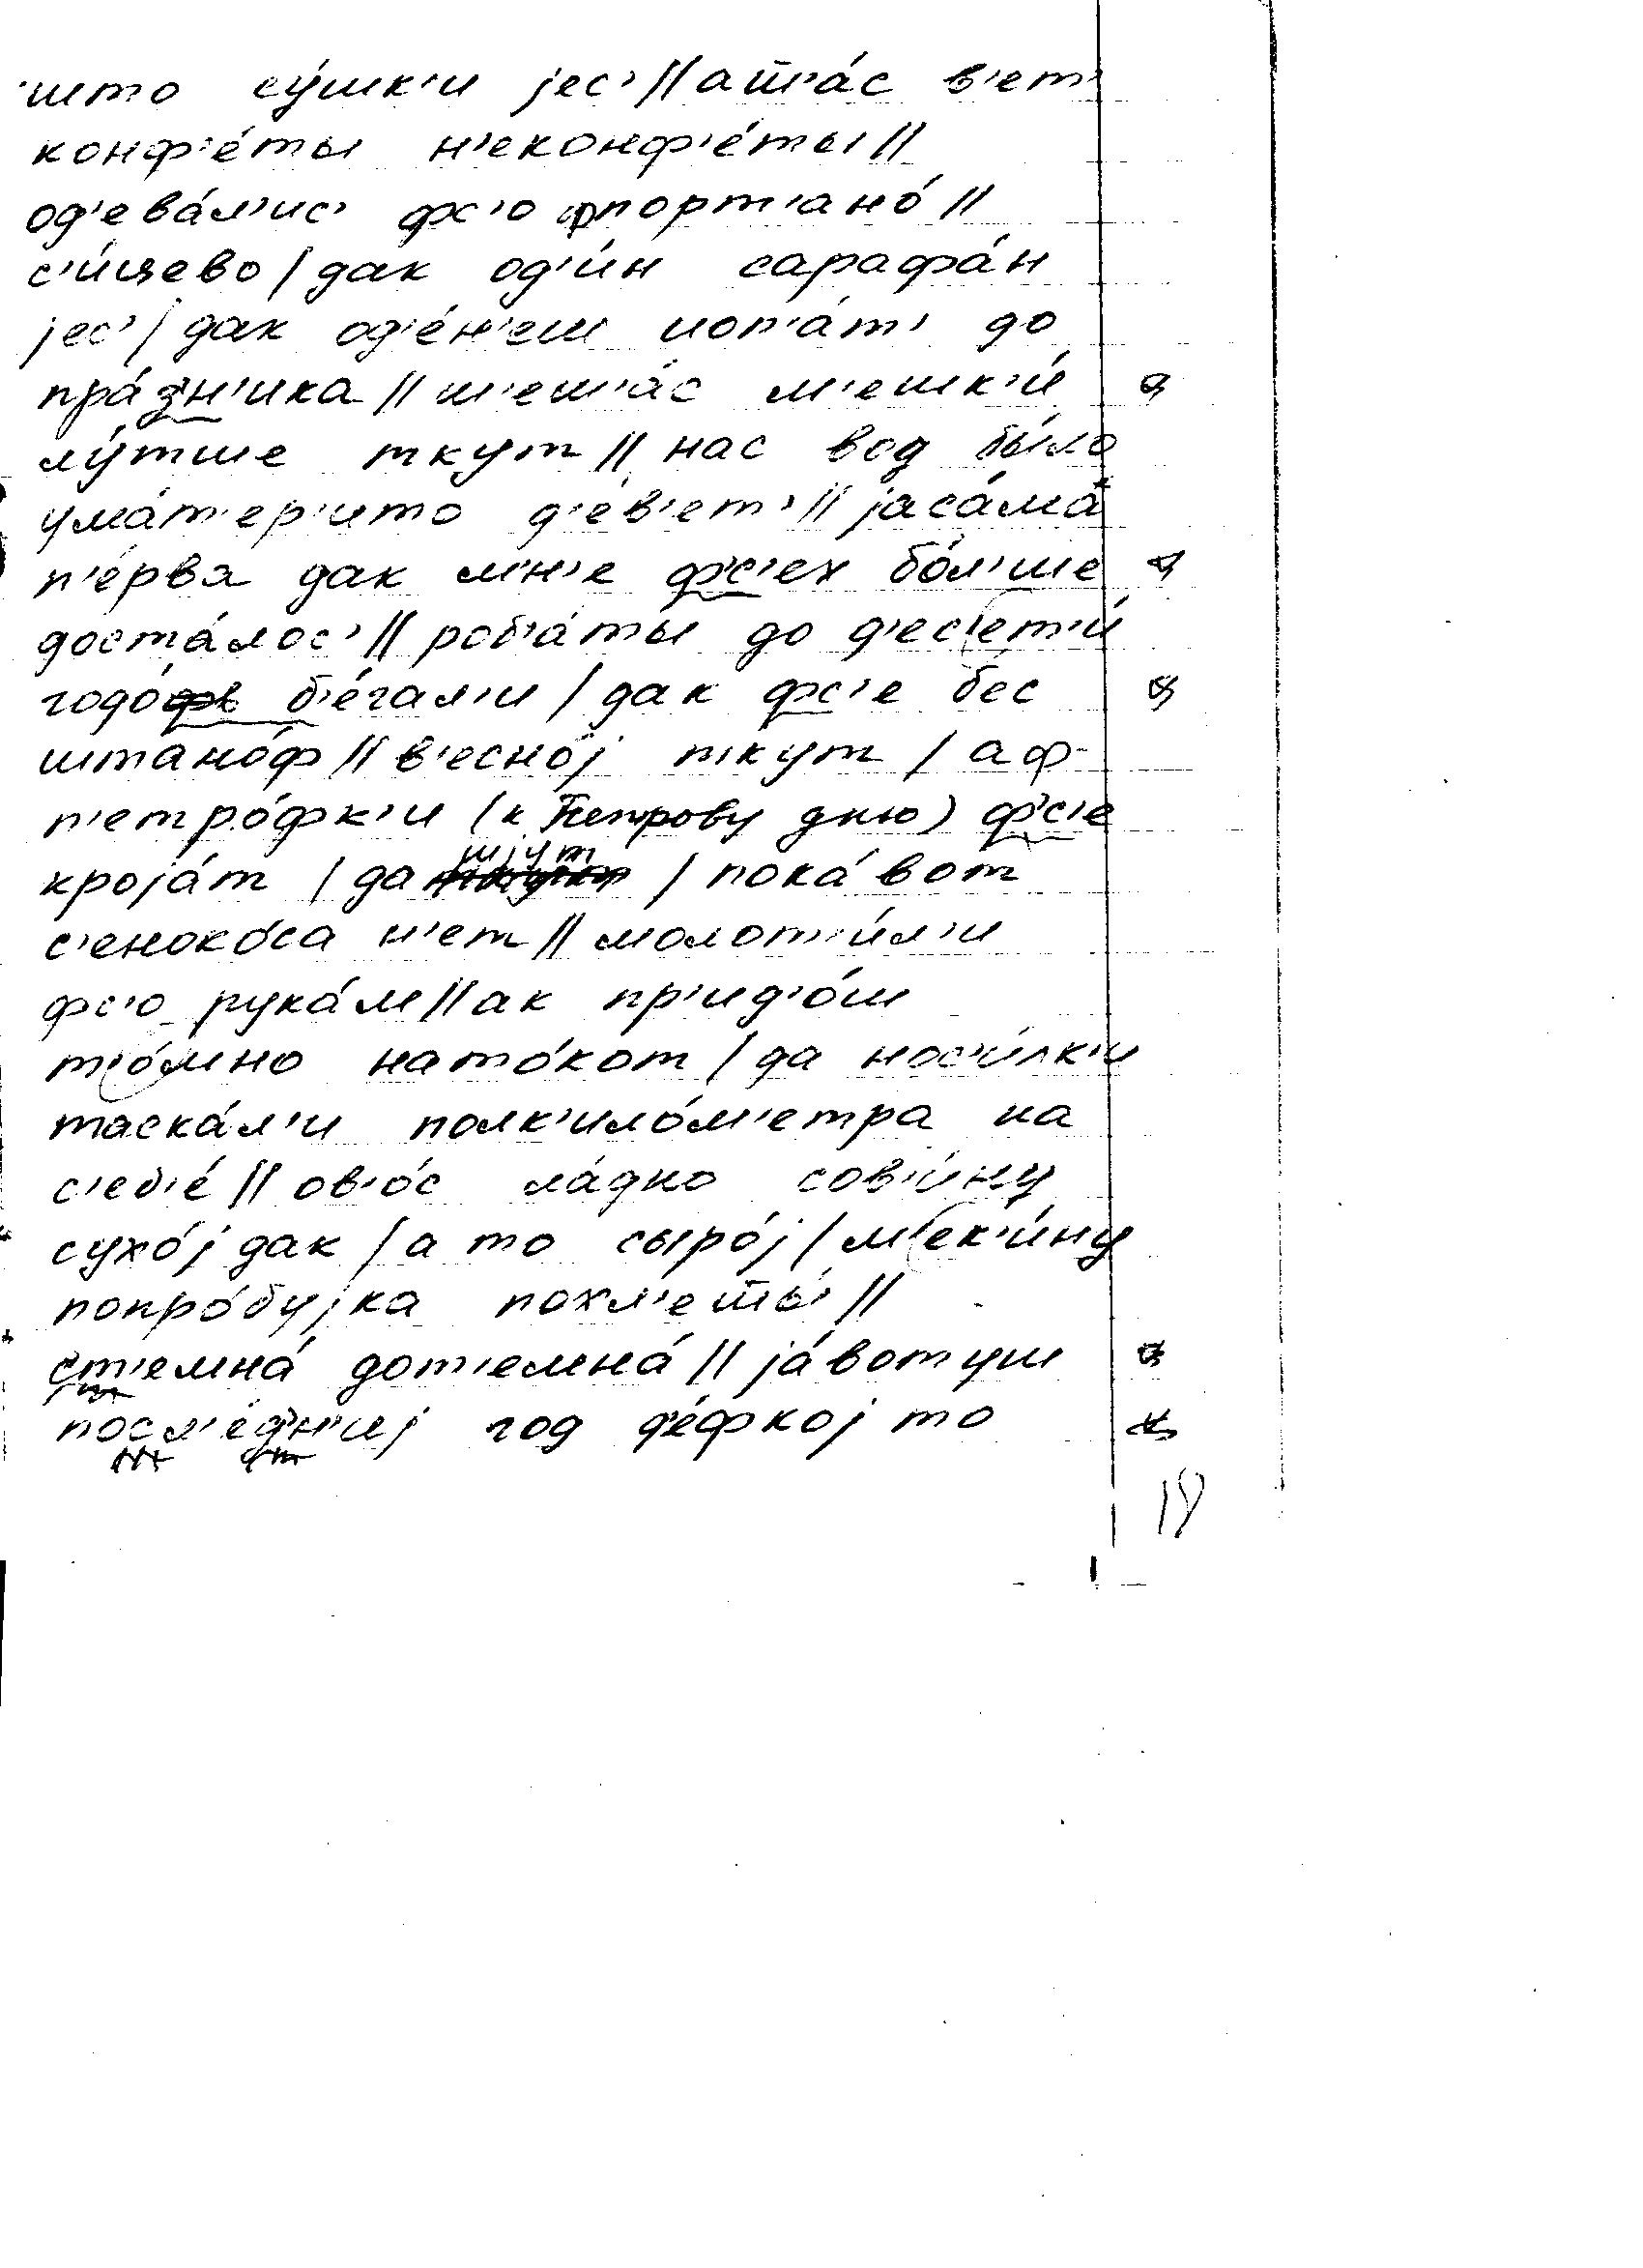 што су́шк'и jес'||ат'а́с в'ет'
конф'е́ты н'еконф'е́ты||
од'ева́л'ис' фс'о портʼано́||
с'и́цево/дак од'и́н сарафа́н
jес'/дак од'е́н'еш иоп'а́т' до
пра́з'н'ика||ш'еш'а́с м'ешк'и́
лу́тше ткут||нас вод бы́ло
ума́т'ер'ито д'е́в'ет'||jасама́
п'е́рва дак м'н'е ф'с'ех бо́л'ше
доста́лос'||роб'а́ты до д'ес'ет'и́
годо́ б'е́гал'и/дак фс'е бес
штано́ф||в'есно́j ткут/аф-
п'етро́фк'и (к Петрову дню) ф'с'е
кроjа́т/да шjут/пока́ вот
с'еноко́са н'ет||молот'и́л'и
фс'о рука́м||ак пр'ид'о́ш
т'о́мно нато́кот/да нос'и́лк'и
таска́л'и полк'ило́м'етра на
с'еб'е́||ов'о́с ла́дно сов'и́ну
сухо́j дак/а то сыро́j/м'ек'и́ну
попро́буjка похл'еты́||
ст'емна́ дот'емна́||jа́вотуш
посл'е́д'н'иj год д'е́фкоj то
18